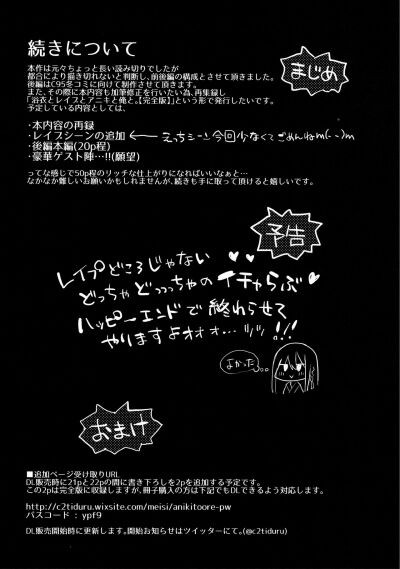 続きについて
まじめ
本作は元々ちょっと長い読み切りでしたが
都合により描き切れないと判断し、前後編の構成とさせて頂きました。
後編はC95冬コミに向けて制作させて頂きます。
また、その際に本内容も加筆修正を行いたい為、再集録し
「浴衣とレイスとアニキと俺と。【完全版】」という形で発行したいです。
予定している内容としては、
・本内容の再録
・レイプシーンの追加 ← えっちシーン今回少なくてごめんねm(- -)m
・後編本編(20p程)
・豪華ゲスト陣…!!(願望)
ってな感じで50p程のリッチな仕上がりになればいいなぁと…
なかなか難しいお願いかもしれませんが、続きも手に取って頂けると嬉しいです。
予告
レイプどころじゃない
どっちゃどっっっちゃのイチャらぶ♥
ハッピーエンドで終わらせて
やりますよオォォ…ッッ!!!
よかった…
おまけ
■追加ページ受け取りURL
DL販売時に21pと22pの間に書き下ろしを2pを追加する予定です。
この2pは完全版に収録しますが、冊子購入の方は下記でもDLできるよう対応します。
http://c2tiduru.wixsite.com/meisi/anikitoore-pw
パスコード : ypf9
DL販売開始時に更新します。開始お知らせはツイッターにて。(@c2tiduru)